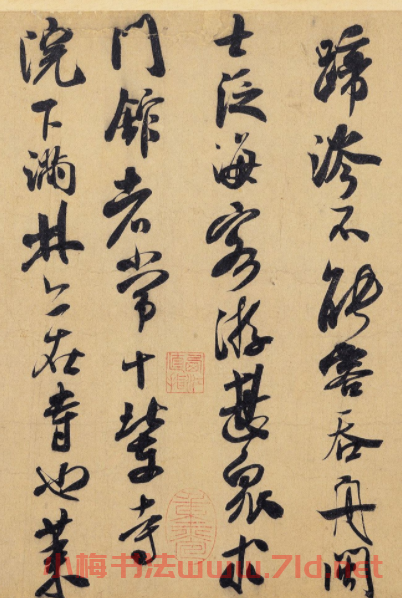 蹄涔不能容吞舟閩
士泛海客游甚眾求
門館者常十輩寺
院下滿林亦在寺也萊
小梅书法www.7ld.net